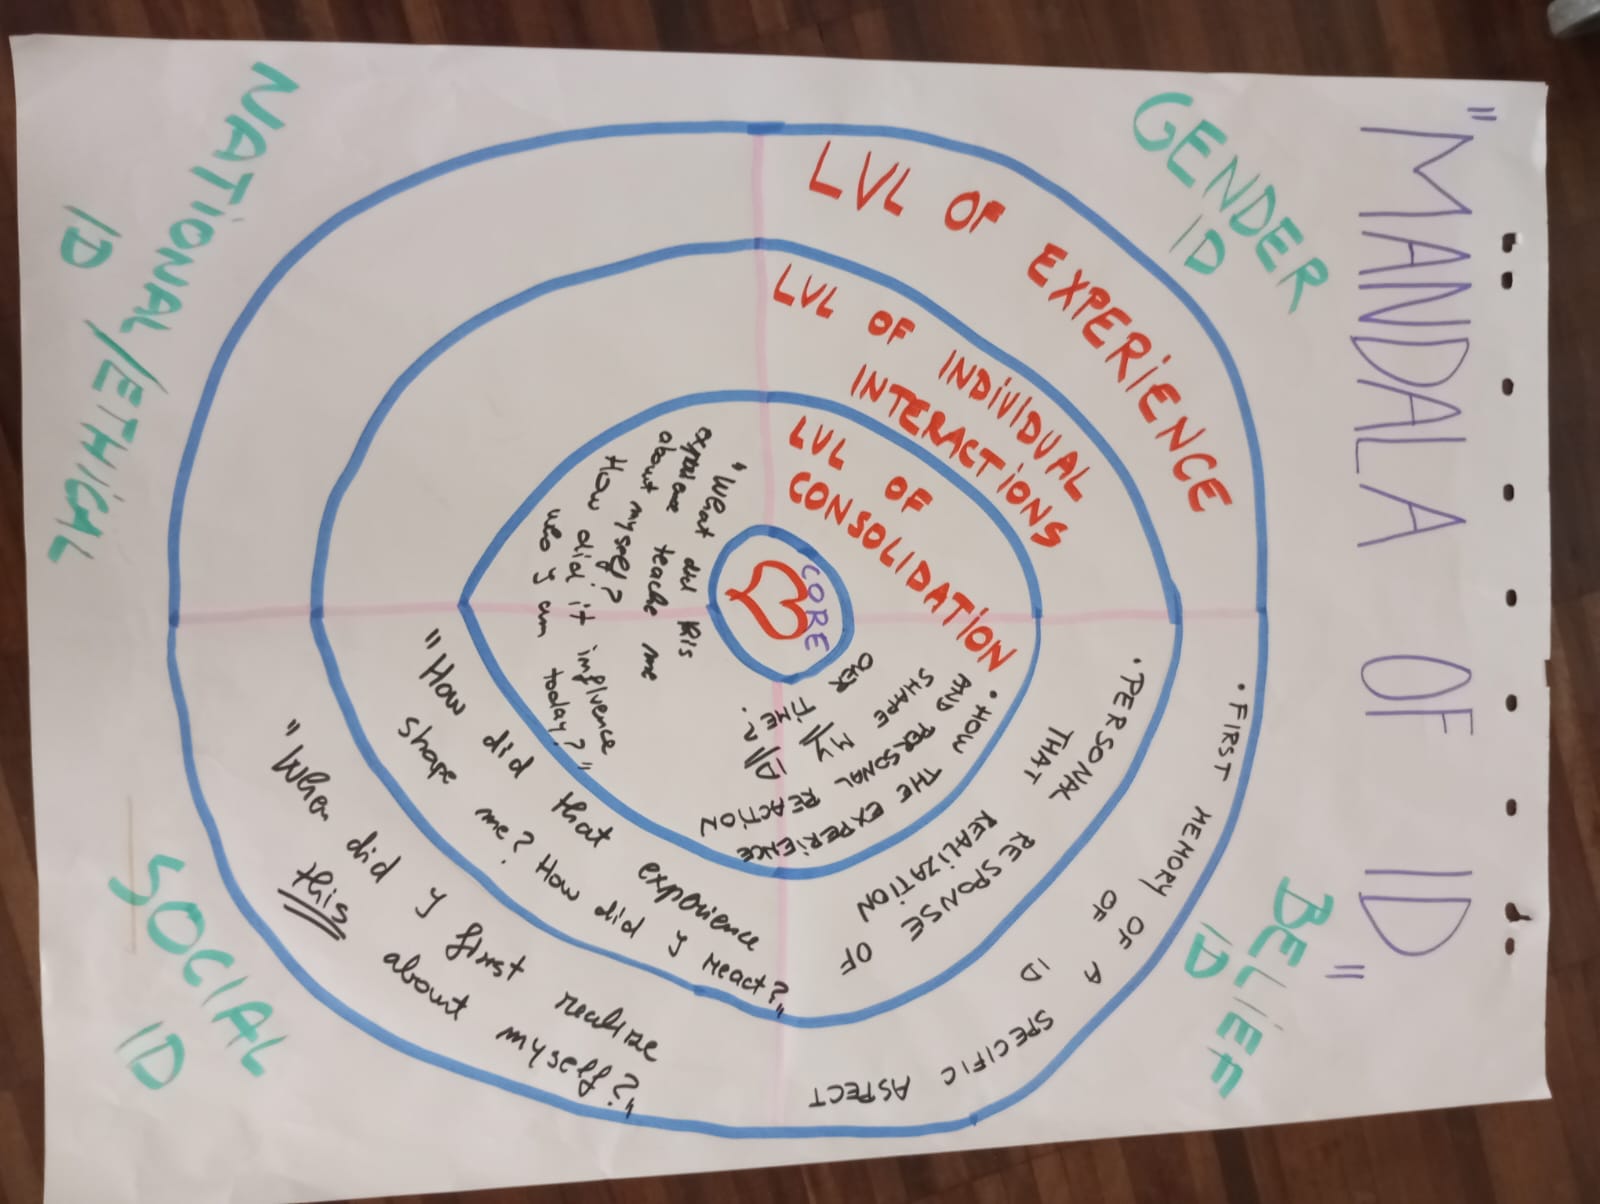 "MANDALA OF ID"
GENDER
ID
BELIEF
ID
NATIONAL/ETHICAL
ID
SOCIAL
ID
LVL OF EXPERIENCE
LVL OF INDIVIDUAL
INTERACTIONS
LVL OF
CONSOLIDATION
CORE
• FIRST MEMORY OF A SPECIFIC ASPECT
OF ID
• PERSONAL RESPONSE OF
THAT REALIZATION
• HOW THE EXPERIENCE
AND PERSONAL REACTION
SHAPE MY ID
OVER TIME.
"What did this
experience teache me
about myself?
How did it influence
who y am today?"
"How did that experience
shape me? How did y react?"
"When did y first realize
this about myself?"